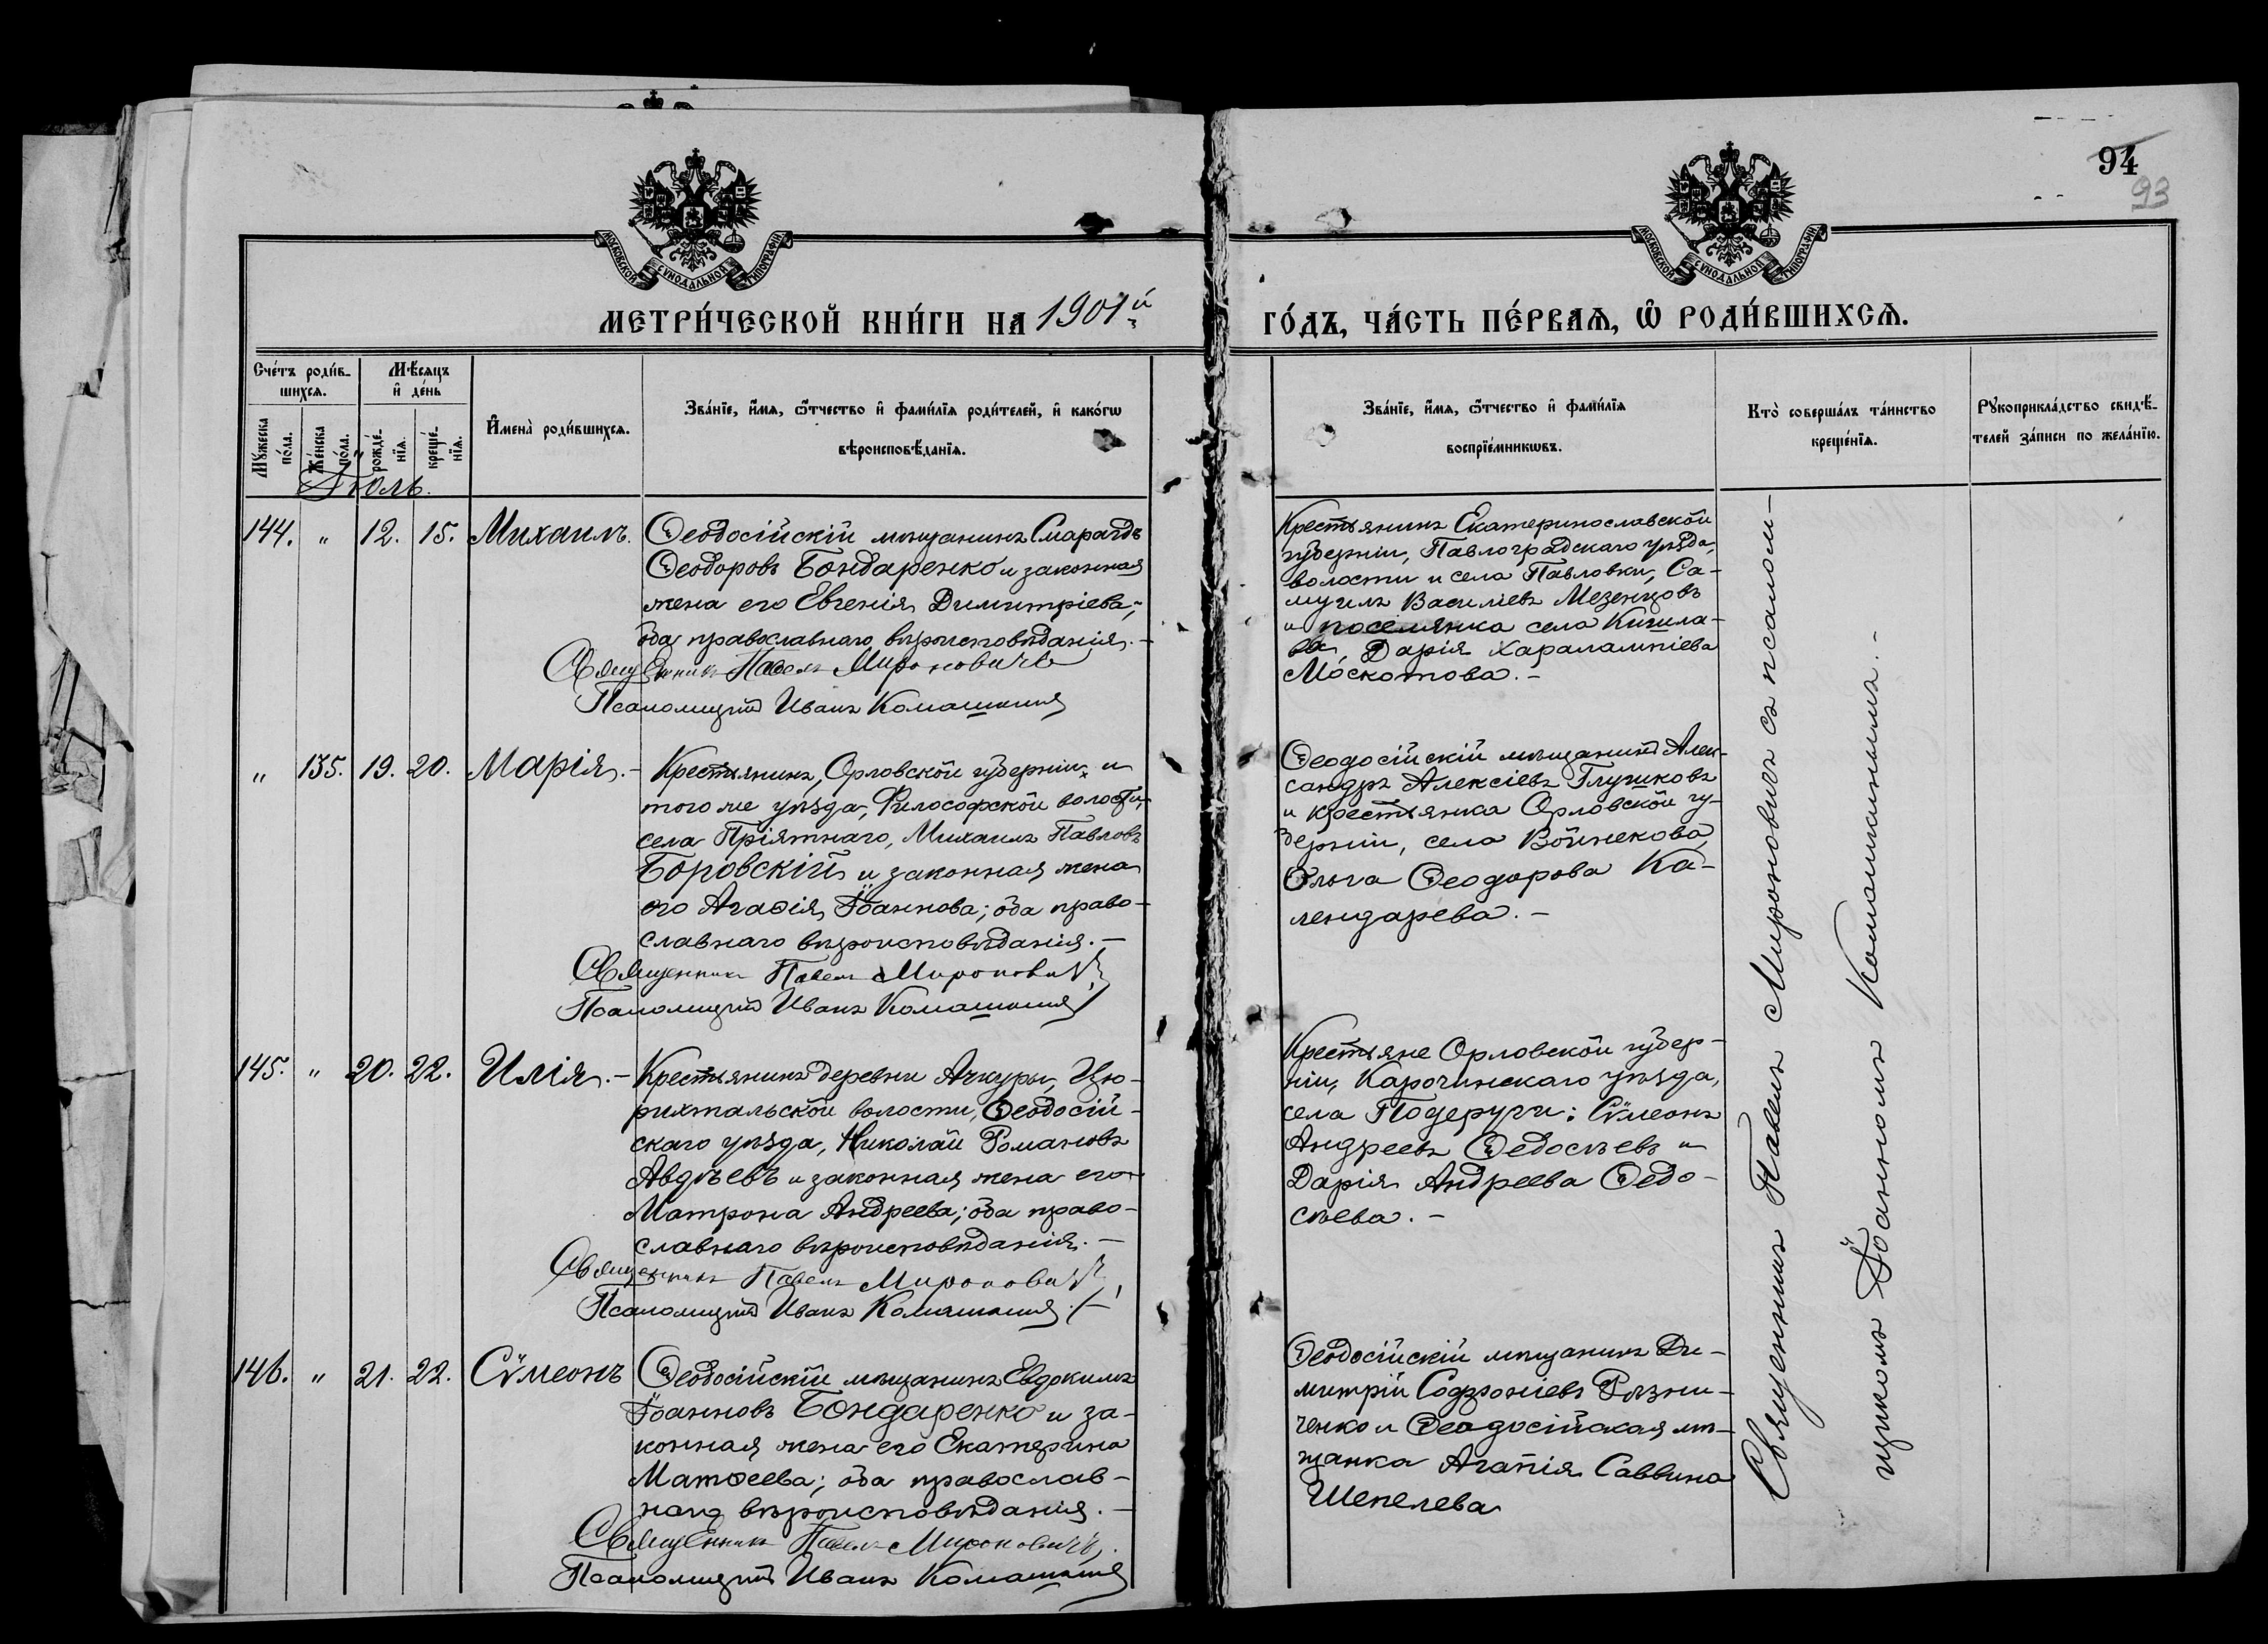 94
93
МОСКОВСКОЙ СѴНОДАЛЬНОЙ ТИПОГРАФІИ
МОСКОВСКОЙ СѴНОДАЛЬНОЙ ТИПОГРАФІИ
МЕТРИ́ЧЕСКОЙ КНИ́ГИ НА 1901й
ГО́ДЪ, ЧА́СТЬ ПЕ́РВАѦ, Ѡ҆ РОДИ́ВШИХСѦ.
Сче́тъ роди́в-
шихсѧ.
Мѣ́сѧцъ
и҆ де́нь
Мꙋ́жеска
по́ла.
Же́нска
по́ла.
рожде́-
нїѧ.
креще́-
нїѧ.
И҆мена̀ роди́вшихсѧ.
Зва́нїе, и҆́мѧ, ѻ҆́тчество и҆ фами́лїѧ роди́телей, и҆ како́гѡ
вѣроисповѣ́данїѧ.
Зва́нїе, и҆́мѧ, ѻ҆́тчество и҆ фами́лїѧ
воспрїе́мникѡвъ.
Кто̀ соверша́лъ та́инство
креще́нїѧ.
Рꙋкоприкла́дство свидѣ́-
телей за́писи по жела́нїю.
Іюль.
144. " 12. 15. Михаилъ.
Ѳеодосійскій мѣщанинъ Смарагдъ
Ѳеодоровъ Бондаренко и законная
жена его Евгенія Димитріева;
оба православнаго вѣроисповѣданія.-
Священникъ Павелъ Мироновичъ
Псаломщикъ Иванъ Комашинъ
Крестьянинъ Екатеринославской
губерніи, Павлоградскаго уѣзда,
волости и села Павловки, Са-
муилъ Василіевъ Мезенцовъ
и поселянка села Кишла-
ва, Дарія Харалампіева
Москотова.-
" 135. 19. 20. Марія.-
Крестьянинъ, Орловской губерніи и
того же уѣзда, Философской волости,
села Пріятнаго, Михаилъ Павловъ
Боровскій и законная жена
его Агаѳія Іоаннова; оба право-
славнаго вѣроисповѣданія.-
Священникъ Павелъ Мироновичъ
Псаломщикъ Иванъ Комашинъ
Ѳеодосійскій мѣщанинъ Алек-
сандръ Алексіевъ Глушковъ
и крестьянка Орловской гу-
берніи, села Войнекова,
Ольга Ѳеодорова Ка-
лендарева.-
145. " 20. 22. Илія.-
Крестьянинъ деревни Ачкуры, Цю-
рихтальской волости, Ѳеодосій-
скаго уѣзда, Николай Романовъ
Авдѣевъ и законная жена его
Матрона Андреева; оба право-
славнаго вѣроисповѣданія.-
Священникъ Павелъ Мироновичъ
Псаломщикъ Иванъ Комашинъ.
Крестьяне Орловской губер-
ніи, Карочинскаго уѣзда,
села Подеруги: Сѵмеонъ
Андреевъ Ѳедосѣевъ и
Дарія Андреева Ѳедо-
сѣева.-
146. " 21. 22. Сѵмеонъ
Ѳеодосійскій мѣщанинъ Евдокимъ
Іоанновъ Бондаренко и за-
конная жена его Екатерина
Матѳеева; оба православ-
наго вѣроисповѣданія.-
Священникъ Павелъ Мироновичъ.
Псаломщикъ Иванъ Комашинъ
Ѳеодосійскій мѣщанинъ Ди-
митрій Софроніевъ Рѣзни-
ченко и Ѳеодосійская мѣ-
щанка Агапія Саввина
Шепелева
Священникъ Павелъ Мироновичъ съ псалом-
щикомъ Іоанномъ Комашинымъ.-